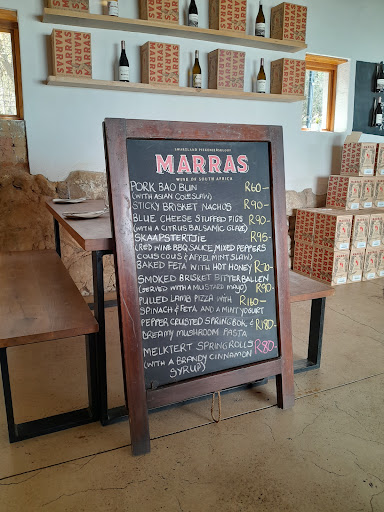 MARRAS
MARRAS
MARRAS
MARRAS
MARRAS
MARRAS
MARRAS
WINE OF SOUTH AFRICA
PORK BAO BUN R60-
(WITH ASIAN COLESLAW)
STICKY BRISKET NACHOS R90-
BLUE CHEESE STUFFED FIGS R90-
(WITH A CITRUS BALSAMIC GLAZE)
SKAAPSTERTJIE R95-
(RED WINE BBQ SAUCE, MIXED PEPPERS
COUS COUS & APPEL, MINT SLAW)
BAKED FETA WITH HOT HONEY R70-
SMOKED BRISKET BITTERBALLEN
(SERVED WITH A MUSTARD MAYO) R90-
PULLED LAMB PIZZA WITH R160-
SPINACH & FETA AND A MINT YOGURT
PEPPER CRUSTED SPRINGBOK & R180-
CREAMY MUSHROOM PASTA
MELKTERT SPRING ROLLS R80-
(WITH A BRANDY CINNAMON
SYRUP)